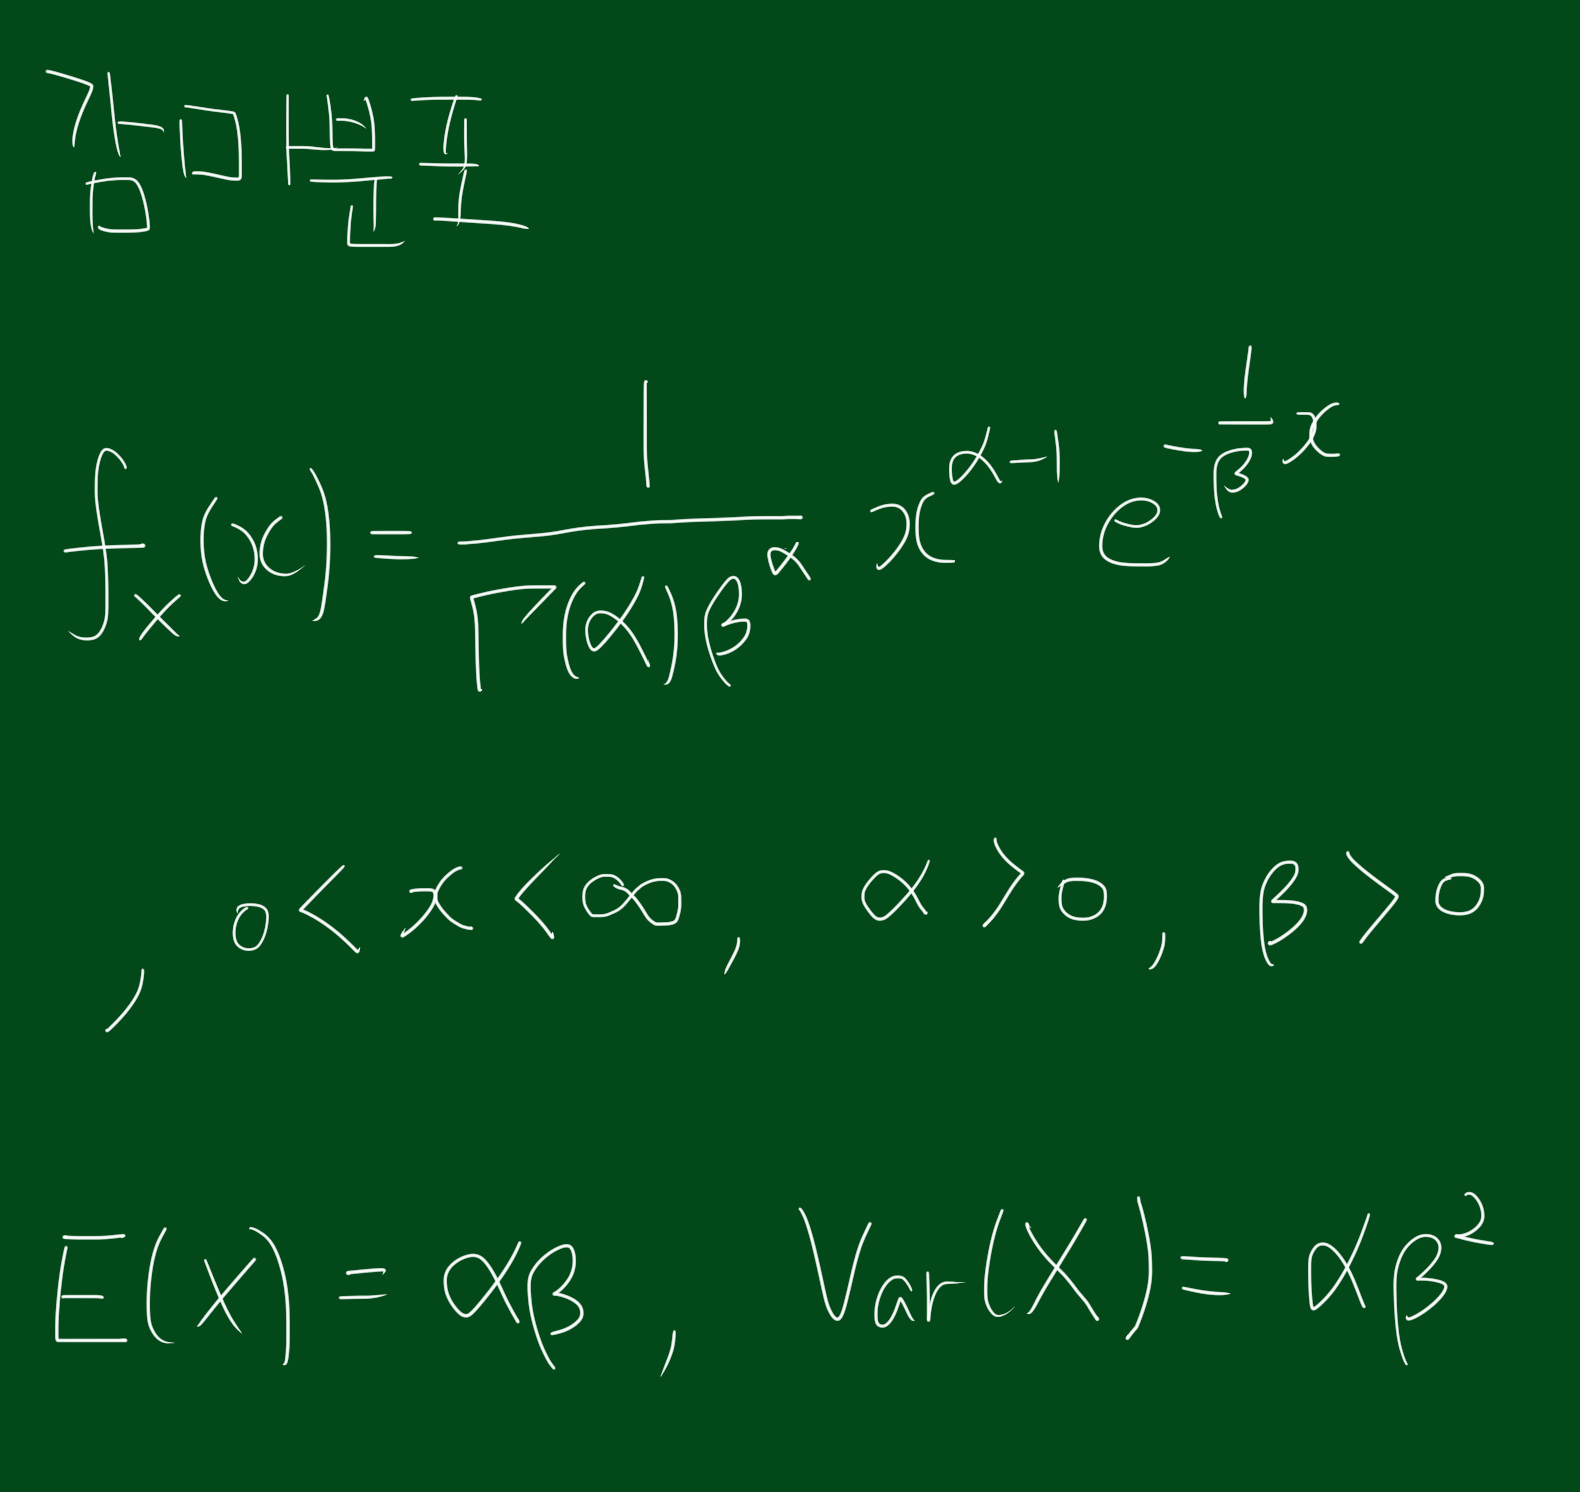 감마분포
f_X(x) = \frac{1}{Γ(α)β^α} x^{α-1} e^{-\frac{1}{β}x}
, 0 < x < ∞, α > 0, β > 0
E(X) = αβ, Var(X) = αβ^2